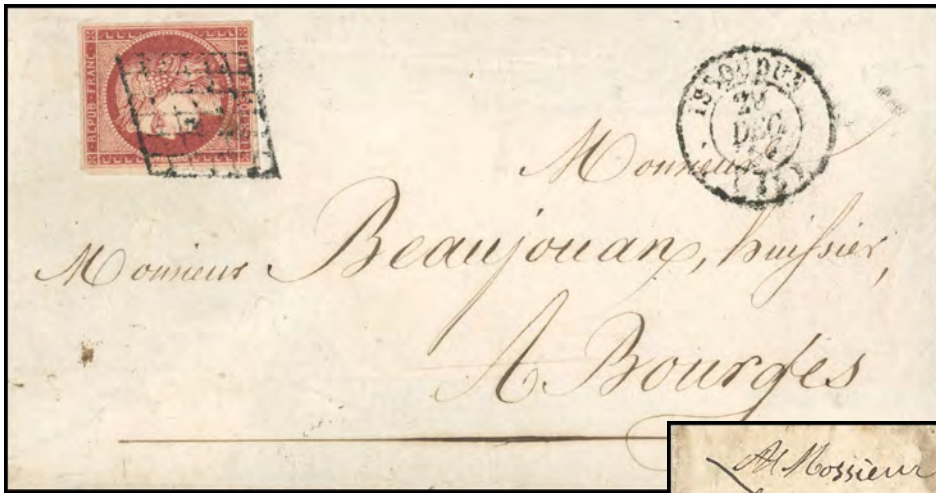 REPUB·FRANC·
ISSOUDUN
DEC.
(35)
Monsieur
Monsieur Beaujouan, huissier,
A Bourges
A Mossieur